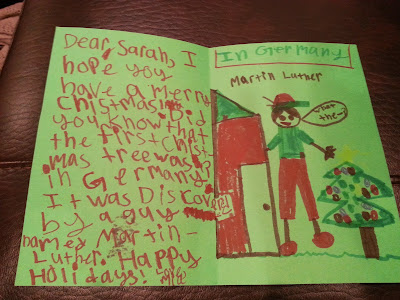 Dear Sarah, I
hope you
have a merry
Chistmas! Did
you know that
the first Christ-
mas tree was
in Germany!
It was Discov
by a guy
named Martin-
Luther. Happy
Holidays!
In Germany
Martin Luther
What
the-